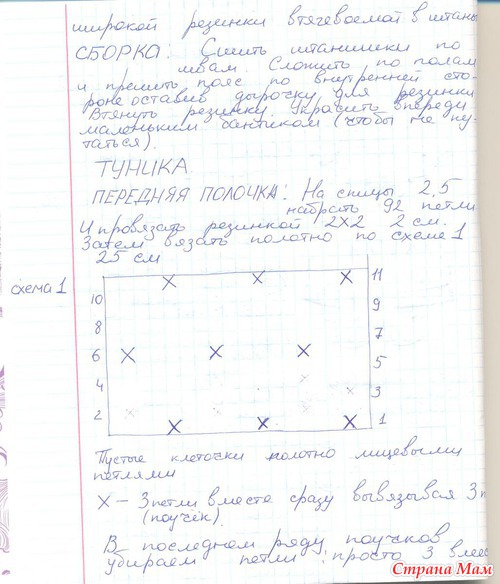 широкой резинки втягеваемой в штаны
СБОРКА. Сшить штанишки по
швам. Сложить по полам
и пришить пояс по внутренней сто-
роне оставив дырочку для резинки
Втянуть резинку. Украсить впереди
маленьким бантиком (чтобы не пу-
таться).
ТУНИКА
ПЕРЕДНЯЯ ПОЛОЧКА: На спицы 2,5
набрать 92 петли
и провязать резинкой 2х2 2 см.
Затем вязать полотно по схеме 1
25 см
схема 1
10 X X X 11
9
8 7
6 X X X 5
4 X 3
2 X X X 1
Пустые клеточки полотно лицевыми
петлями
X – 3 петли вместе сразу вывязывая 3 п
(паучёк).
В последнем ряду паучков
убираем петли: просто 3 вмес
Страна Мам